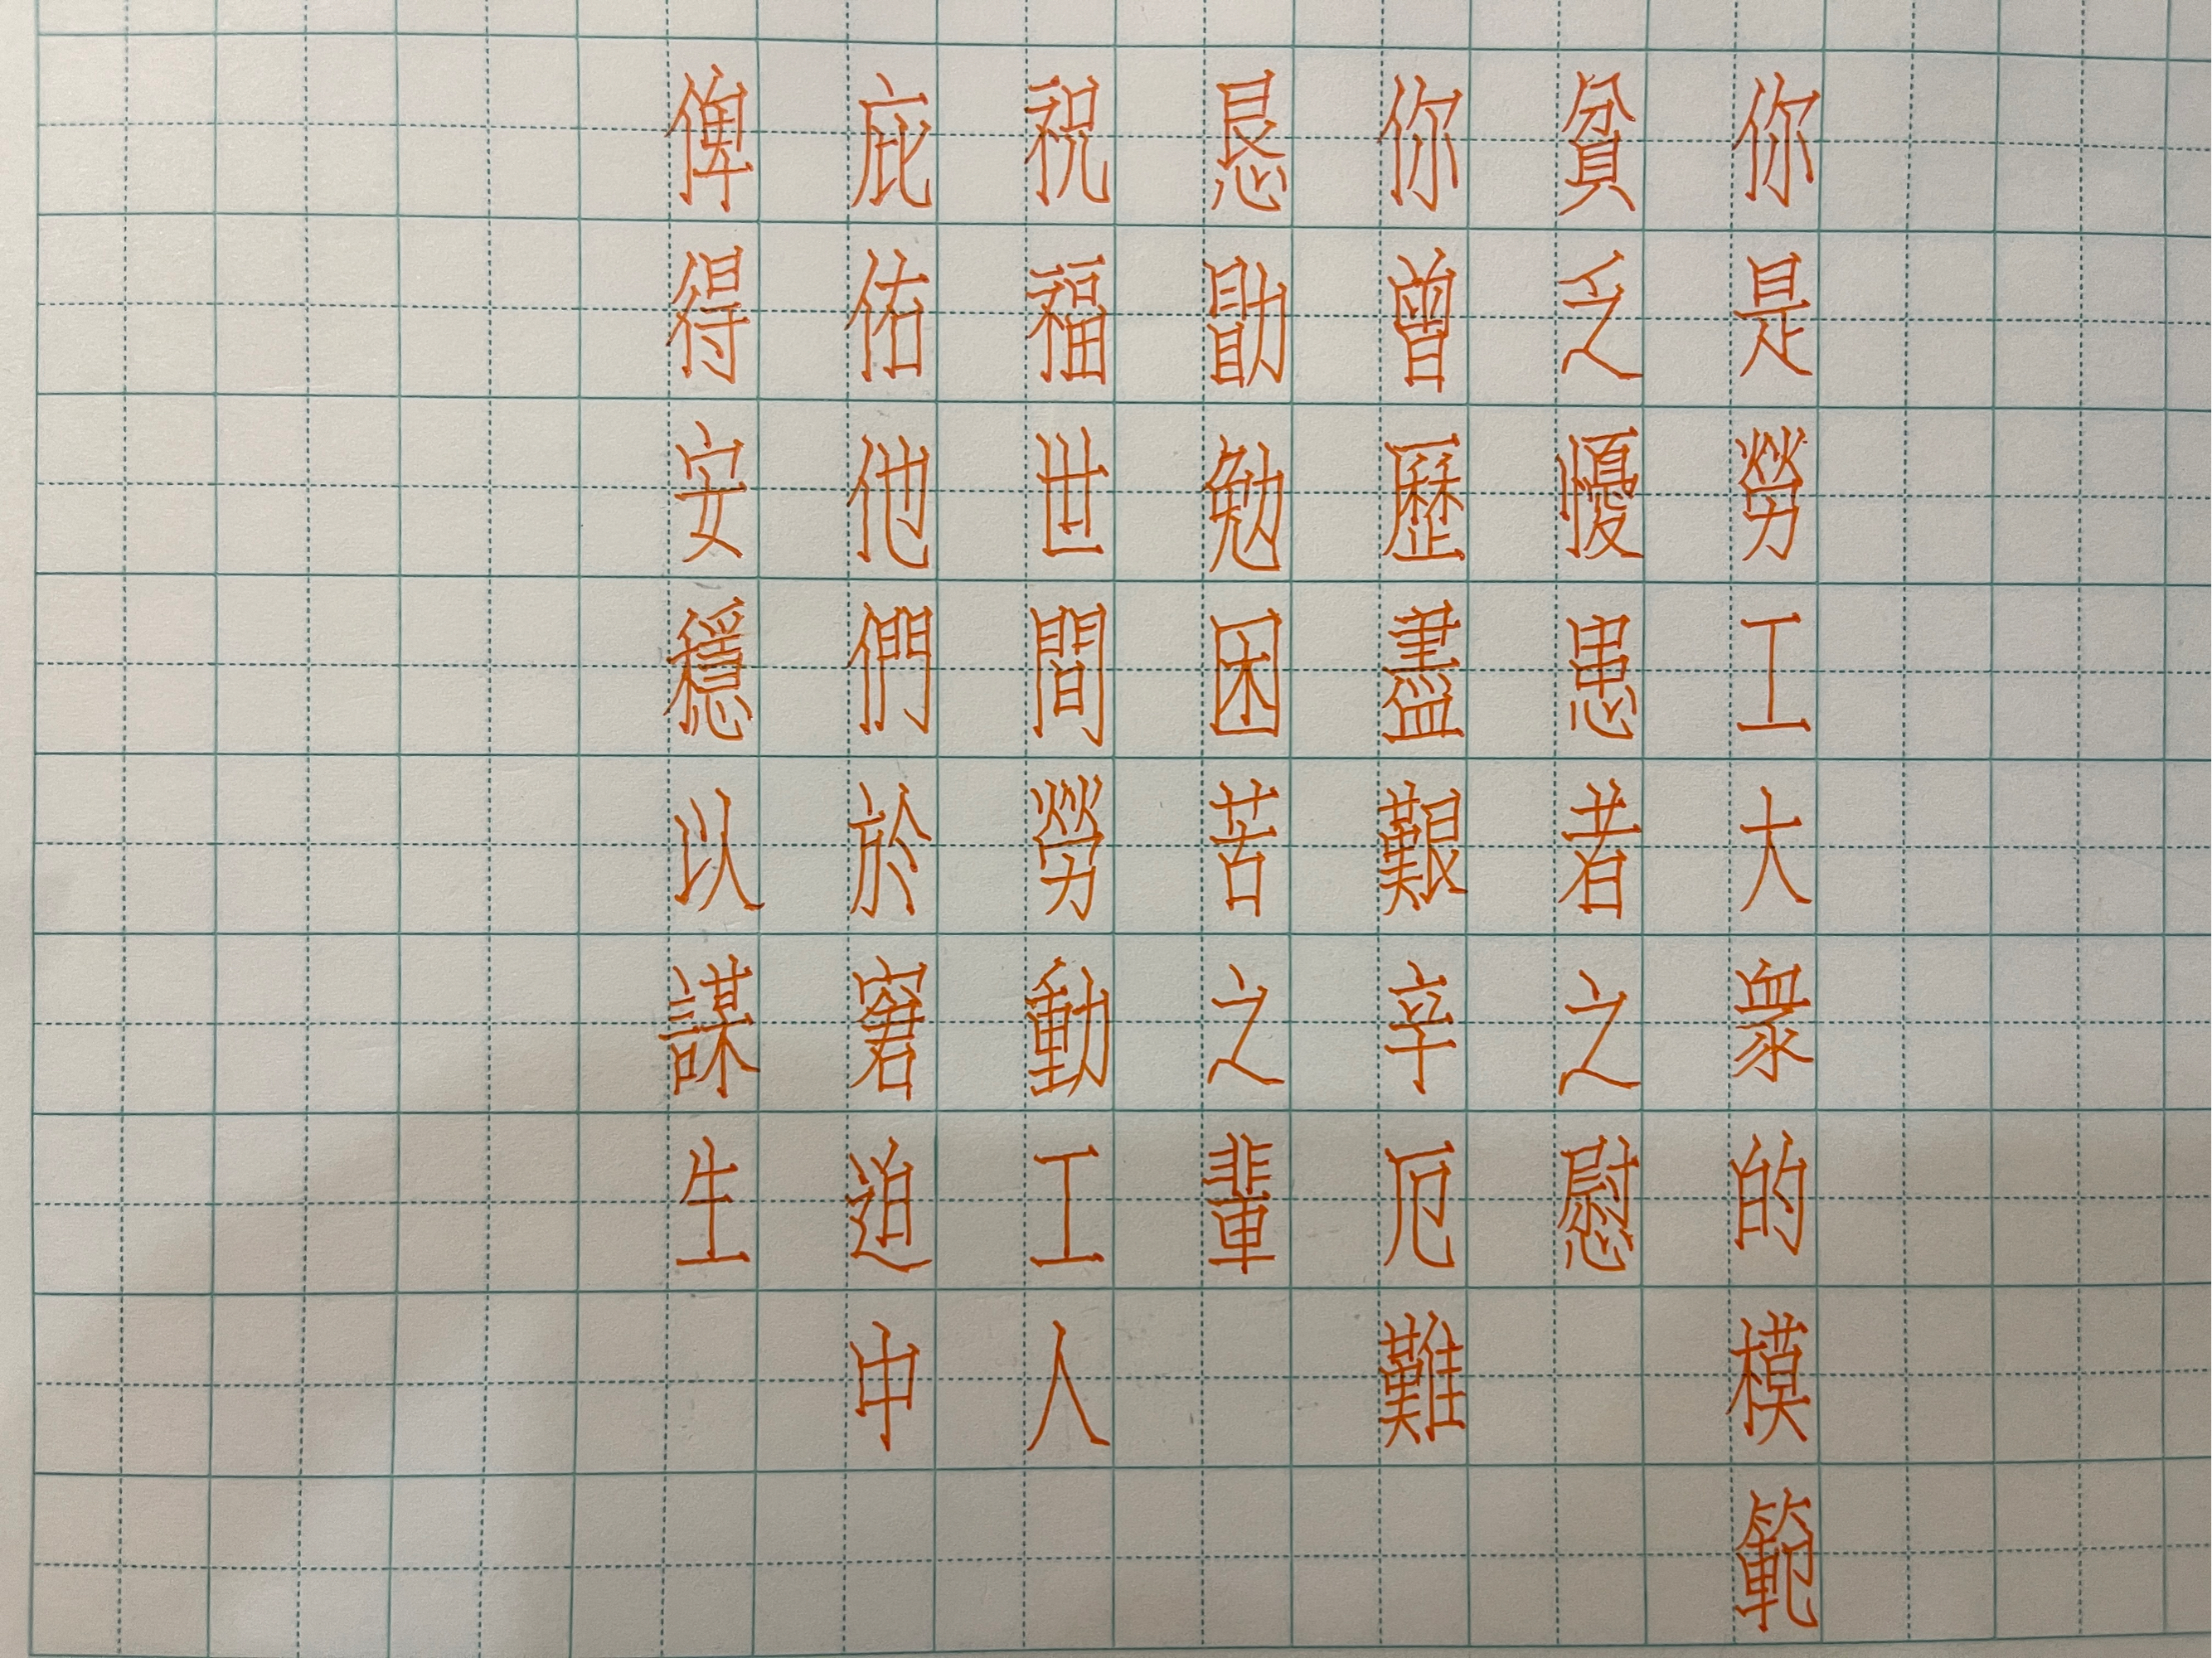 你是勞工大衆的模範
貧乏懮患者之慰
你曾歷盡艱辛厄難
恳勖勉困苦之輩
祝福世間勞動工人
庇佑他們於窘迫中
俾得安穩以謀生